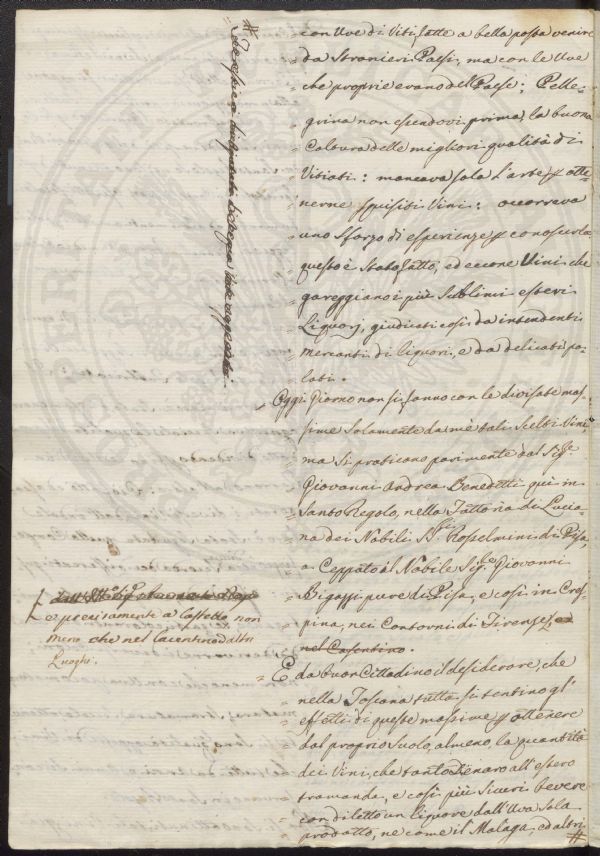 con Uve di Viti fatte a bella posta venire
da Stranieri Paesi, ma con le Uve
che proprie erano del Paese; Pelle-
grina non essendovi prima la buona
Coltura delle migliori qualità di
Vitiati: mancava sola l'arte p otte-
nerne squisiti Vini: occorreva
uno Sforzo di esperienze p conoscerla
questo è Stato fatto, ed eccone Vini che
gareggiano i più Sublimi esteri
Liquorj, giudicati così da intendenti
mercanti di liquori, e da delicati pa-
lati.
Oggi Giorno non si fanno con le divisate mas-
sime Solamente da mè tali Scelti Vini
ma Si praticono parimente dal Sig.e
Giovanni Andrea Benedetti qui in
Santo Regolo, nella Fattoria di Lucia-
na dei Nobili SS.ri Rosselmini di Pisa,
a Ceppato al Nobile Sig.e Giovanni
Bigazzi pure di Pisa, e così in Cres-
pina, nei Contorni di Firenze, ed
nel Casentino.
E da buon Cittadino il desiderare, che
nella Toscana tutta si sentino gl'
effetti di queste massime p ottenere
dal proprio Suolo, almeno, la quantità
dei Vini, che tanto Denaro all'estero
tramanda, e così più Sicuri bevere
con diletto un liquore dall'Uva Sola
prodotto, ne come il Malaga, ed altri
#
#
e precisamente a Castello, non
meno che nel Casentino ed altri
Luoghi.